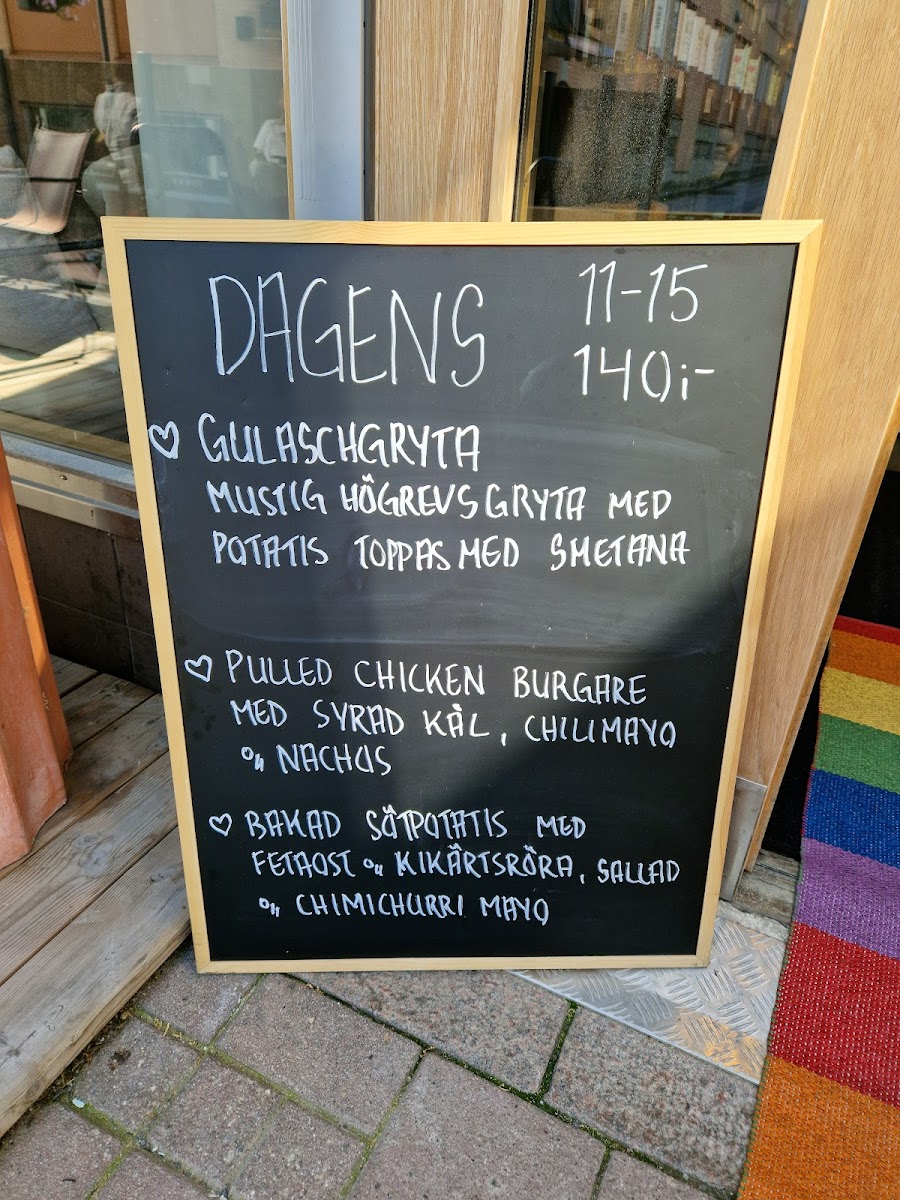 DAGENS
11-15
140:-
♡ GULASCHGRYTA
MUSTIG HÖGREVSGRYTA MED
POTATIS TOPPAS MED SMETANA
♡ PULLED CHICKEN BURGARE
MED SYRAD KÅL, CHILIMAYO
o/u NACHOS
♡ BAKAD SÖTPOTATIS MED
FETAOST o/u KIKÄRTSRÖRA, SALLAD
o/u CHIMICHURRI MAYO